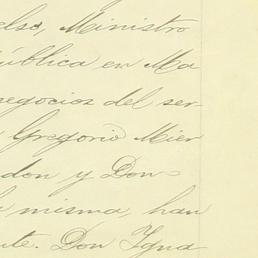 elso, Ministro
ública en Ma
negocios del ser-
Gregorio Mier
don y Don
a misma, han
te. Don Igna